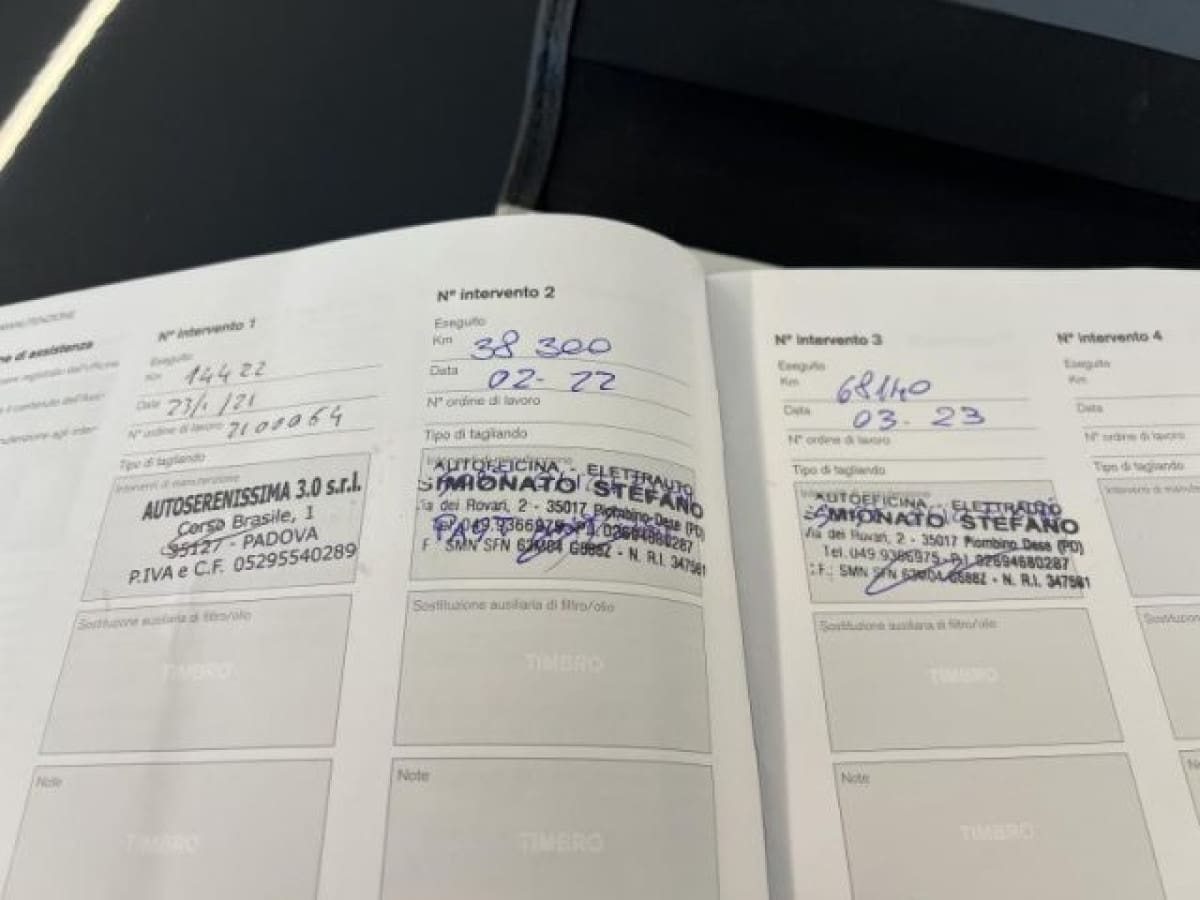 MANUTENZIONE
ne di assistenza
N° intervento 1
Eseguito
Km 14422
Data 23/1/21
N° ordine di lavoro 2100064
Tipo di tagliando
Interventi di manutenzione
AUTOSERENISSIMA 3.0 s.r.l.
Corso Brasile, 1
35127 - PADOVA
P.IVA e C.F. 05295540289
Sostituzione ausiliaria di filtro/olio
TIMBRO
Note
TIMBRO
N° intervento 2
Eseguito
Km 38 300
Data 02-22
N° ordine di lavoro
Tipo di tagliando
AUTOFFICINA - ELETTRAUTO
SIMIONATO STEFANO
Via dei Rovari, 2 - 35017 Piombino Dese (PD)
Tel. 049.9366975 - P.I. 02694680287
N. R.I. 347581
Sostituzione ausiliaria di filtro/olio
TIMBRO
Note
TIMBRO
N° intervento 3
Eseguito
Km 68140
Data 03-23
N° ordine di lavoro
Tipo di tagliando
AUTOFFICINA - ELETTRAUTO
SIMIONATO STEFANO
Via dei Rovari, 2 - 35017 Piombino Dese (PD)
Tel. 049.9366975 - P.I. 02694680287
N. R.I. 347581
Sostituzione ausiliaria di filtro/olio
TIMBRO
Note
TIMBRO
N° intervento 4
Eseguito
Km
Data
N° ordine di lavoro
Tipo di tagliando